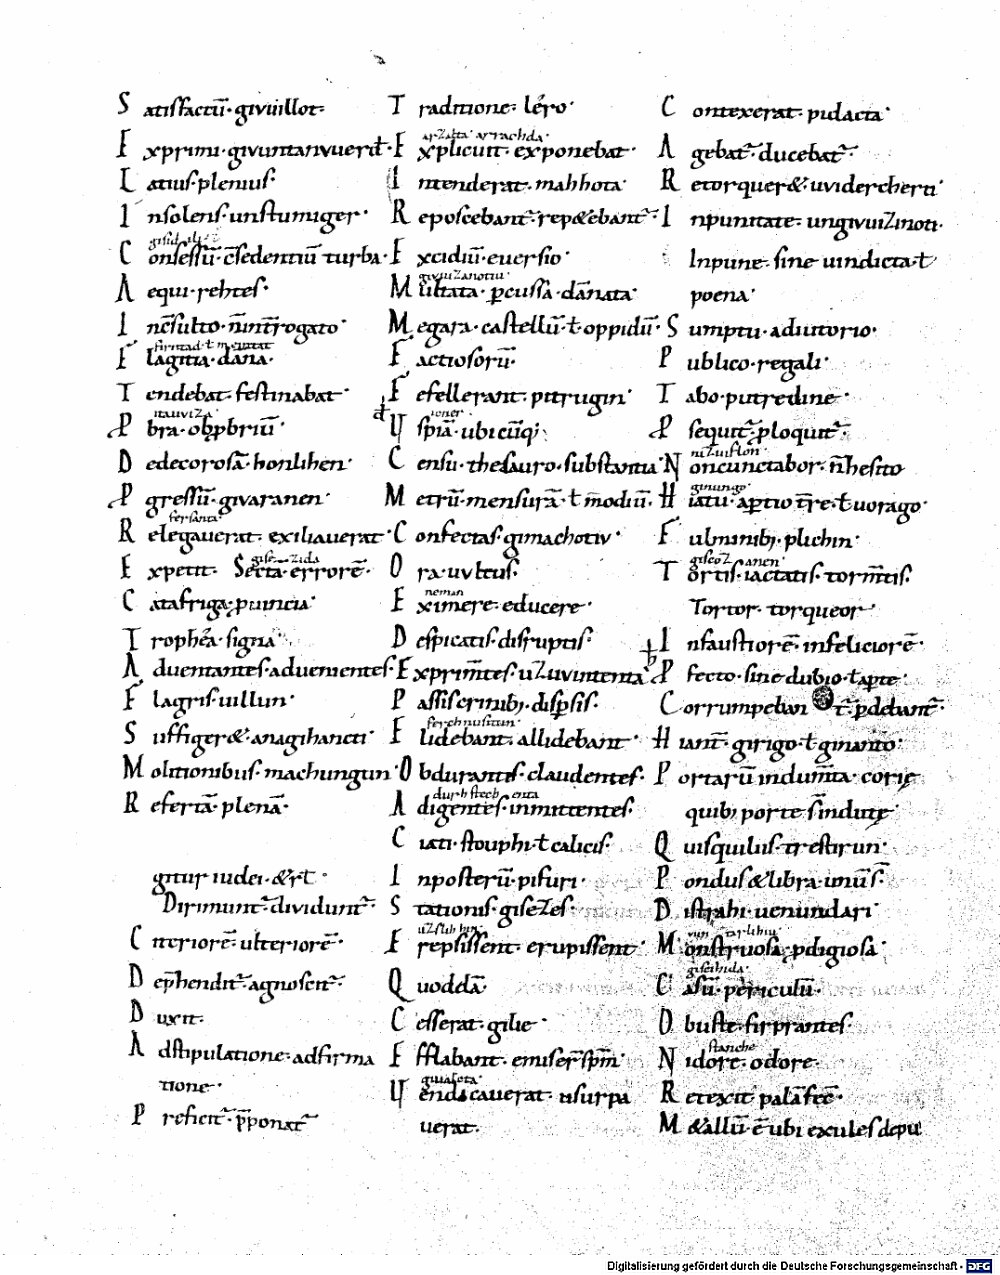 Satisfactū · givuillot ·
Exprimi · givuntanvuerd ·
Latius · plenius ·
Insolens · unstumiger ·
Consessū · c̄sedentiū turba ·
Aequi · rehtes ·
Inc̄sulto · n̄ int̄rogato ·
Flagitia · dana ·
Tendebat · festinabat ·
itauviza
Pbra · obpbriū ·
Dedecorosā · honlihen ·
Pgressū · givaranen ·
fersanta
Relegauerat · exiliauerat ·
Expetit · Secta · errorē ·
Catafriga · puincia ·
Trophea · signa ·
Aduentantes · aduenientes ·
Flagris · uillun ·
Suffiger& · anagihancti ·
Molitionibus · machungun ·
Refertā · plenā ·
gitur iudei · &rt ·
Dirimunt̄ · diuidunt̄ ·
Citeriorē · ulteriorē ·
Dep̄hendit̄ · agnoscit̄ ·
Duxit ·
Adstipulatione · adfirma
tione ·
Preficit̄ · p̄ponat̄
Traditione · léro ·
arzalta · arrachda ·
Explicuit · exponebat ·
Intenderat · mahhota ·
Reposcebant̄ · rep&ebant̄ ·
Excidiū · euersio ·
givuizanotiu
Multata · pcussa · dānata ·
Megara · castellū · t oppidū ·
Factiosorū ·
Fefellerant · pitrugin ·
Uspiā · ubicūq;
Censu · thesauro · substantia ·
Metrū · mensurā · t modiū ·
Confectas · gimachotiv ·
Ora · uvltus ·
neman
Eximere · educere ·
Despicatis · disruptis ·
Exprim̄tes · uzuvintenta
Passis crinibȝ · dispsis ·
ferchnusitun
Elidebant · allidebant ·
Obdurantes · claudentes ·
durhstechenta
Adigentes · inmittentes ·
Ciati · stouphi · t calicis ·
Inposterū · pifuri ·
Stationis · gisezes ·
Erepsissent · erupissent ·
Quoddā ·
Cesserat · gilie ·
Efflabant · emiser̄ sp̄m ·
Uendicauerat · usurpa
uerat ·
Contexerat · pidacta ·
Agebat̄ · ducebat̄ ·
Retorquer& · uvidercherti ·
Inpunitate · ungivuizinoti ·
Inpune · sine uindicta · t
poena ·
Sumptu · adiutorio ·
Publico · regali ·
Tabo · putredine ·
Psequit̄ · ploquit̄ ·
nizuiflon
Noncunctabor · n̄ hesito
ginungo
Hiatu · aptio t̄re · t uorago ·
Fulminibȝ · plichin ·
giscozanen
Tortis · iactatis · torm̄tis ·
Tortor · torqueor ·
Infaustiorē · infeliciorē ·
Pfecto · sine dubio · t apte ·
Corrumpebant̄ · pdebant̄ ·
Hiant · girigo · t ginanto ·
Portarū indum̄ta · corię
quibȝ porte s̄ indutę ·
Quisquilias · trestirun ·
Pondus & libra · unū s̄ ·
Distrahi · uenundari ·
Monstruosa · pdigiosa ·
giscihida
Casū · periculū ·
Obuste · firprantes ·
stanche
Nidore · odore ·
Retexit · palā fec̄ ·
M&allū · ē ubi exules depu